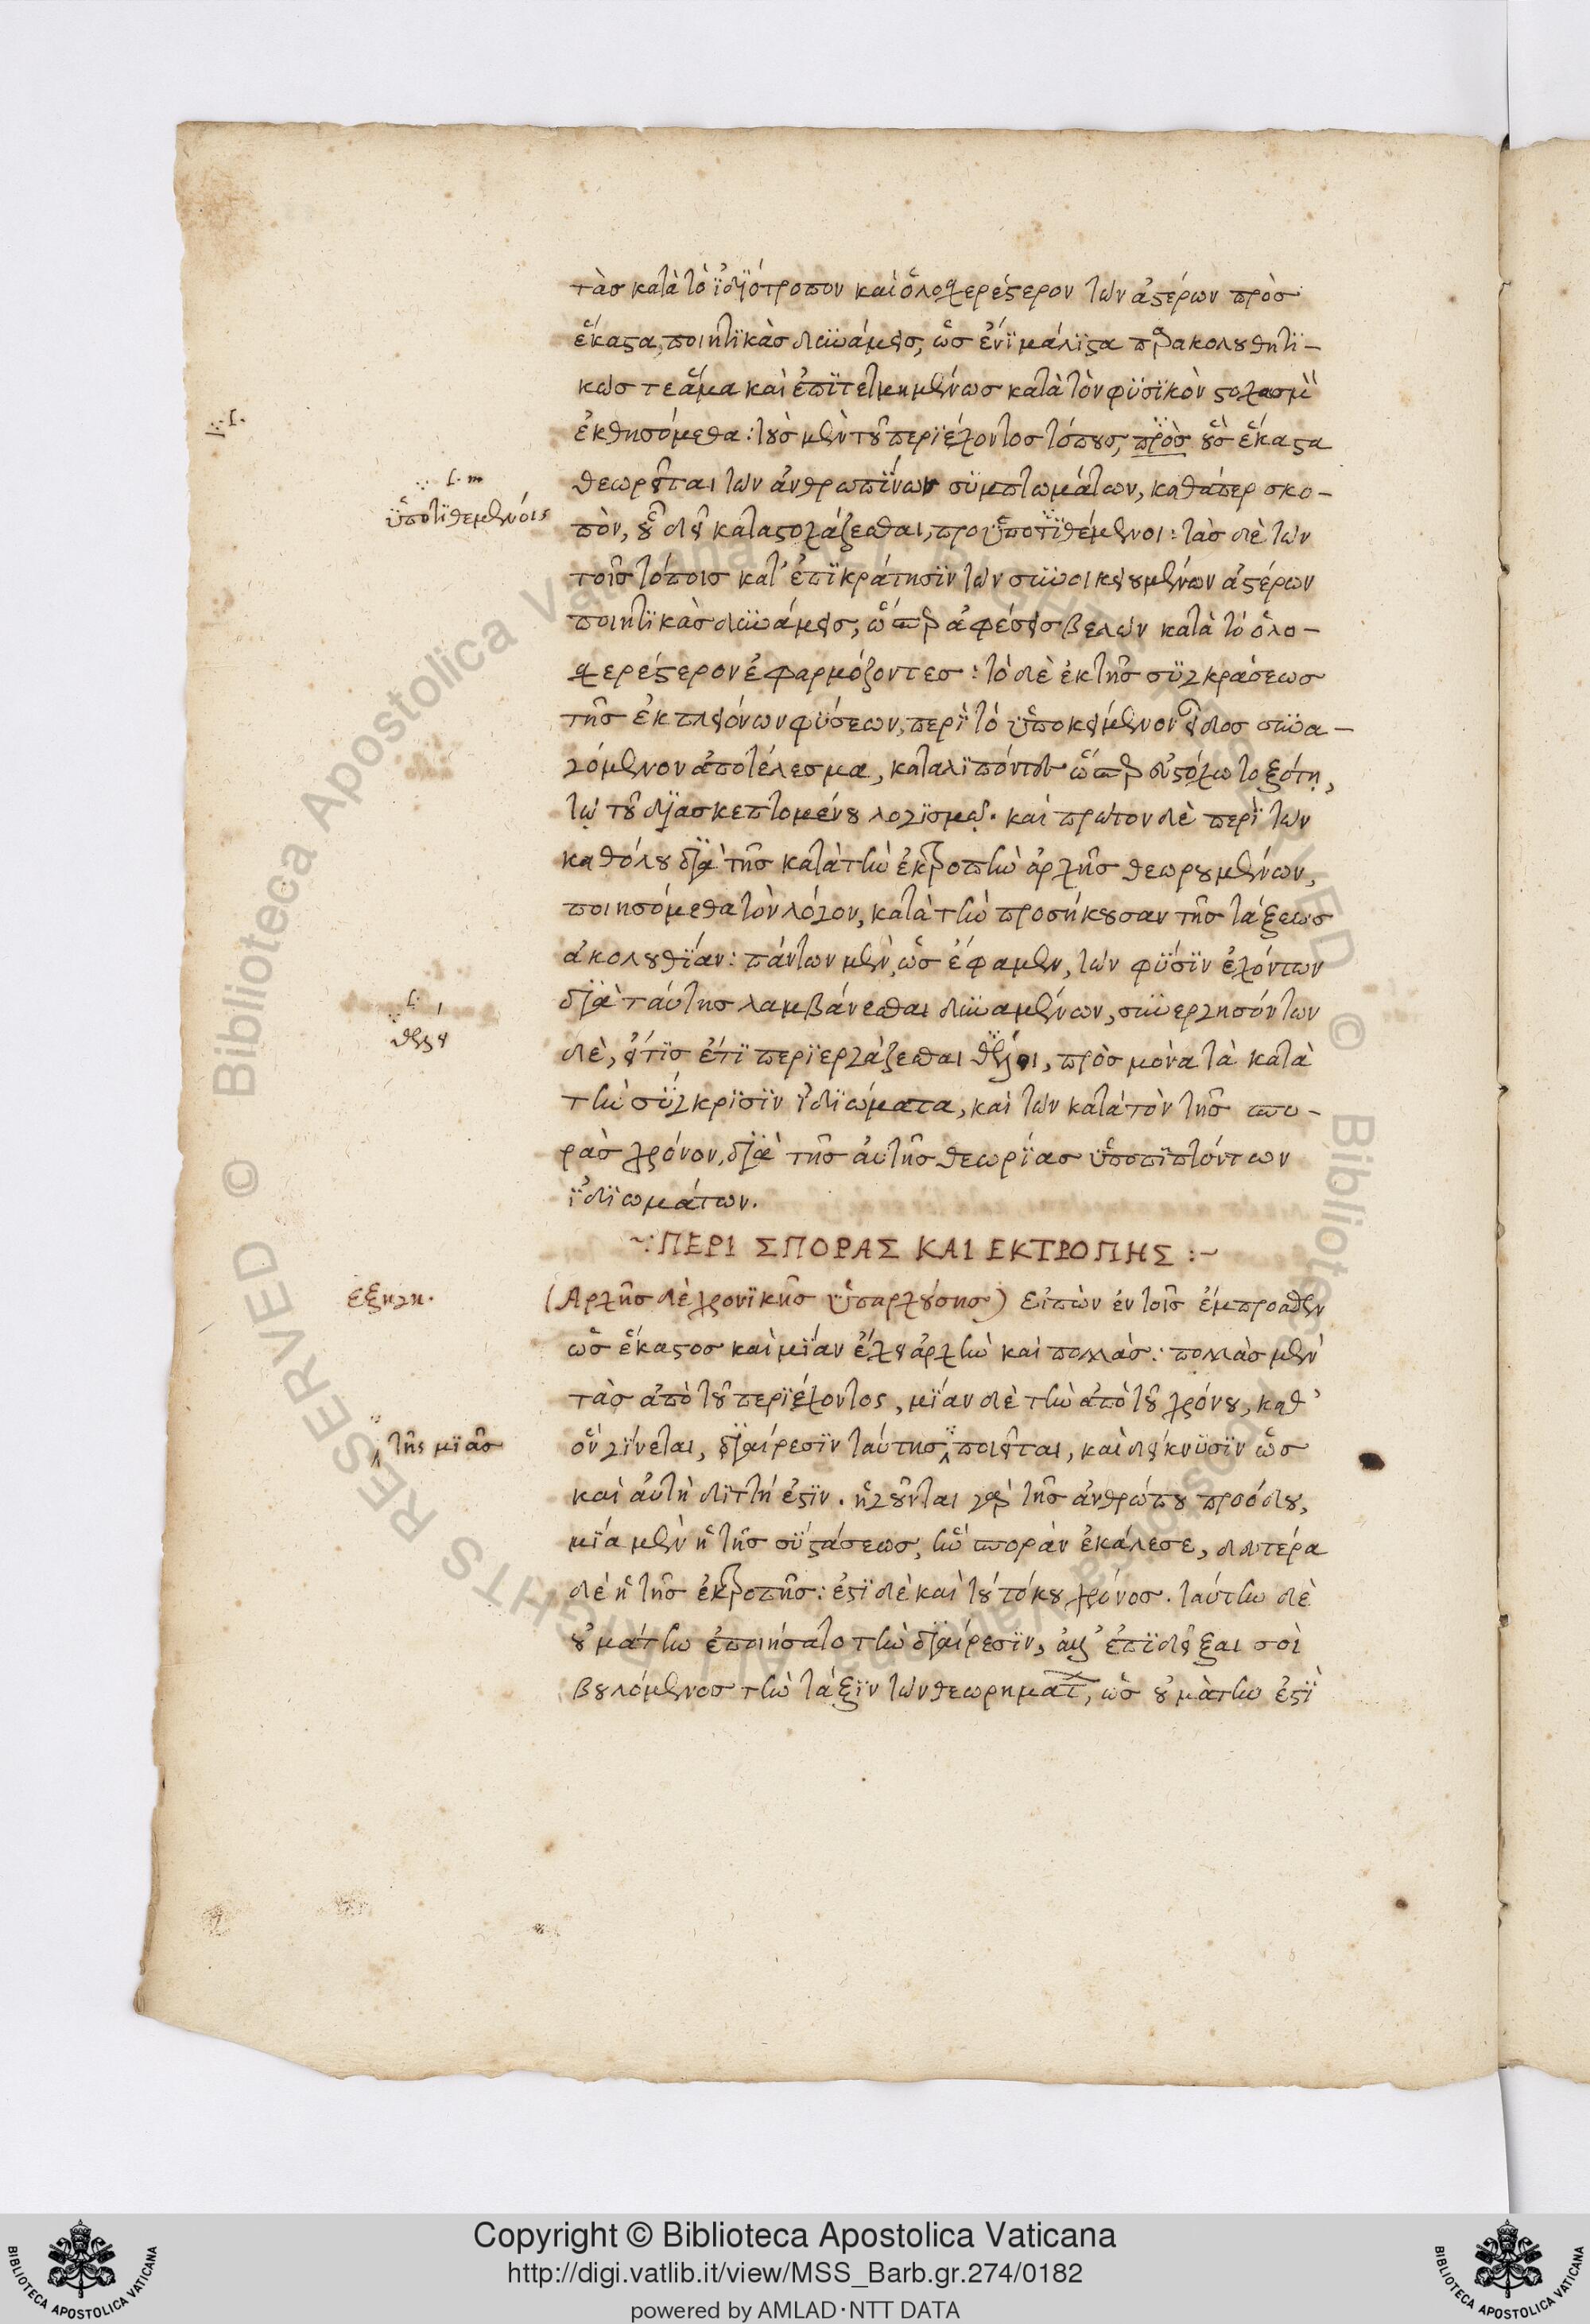 τὰσ κατὰ τὸ ἰδιότροπον καὶ ὁλοσχερέστερον τῶν ἀστέρων πρὸσ
ἕκαστα, ποιητικὰσ δυνάμεισ, ὡσ ἔνι μάλιστα παρακολουθητι-
κῶσ τε ἅμα καὶ ἐπιτετμημένωσ κατὰ τὸν φυσικὸν στοχασμὸν
ἐκθησόμεθα: τοὺσ μὲν τοῦ περιέχοντοσ τόπουσ, πρὸσ οὓσ ἕκαστα
θεωρεῖται τῶν ἀνθρωπίνων συμπτωμάτων, καθάπερ σκο-
ὑποτιθεμένοις
πὸν, οὗ δεῖ καταστοχάζεσθαι, προϋποτιθέμενοι: τὰσ δὲ τῶν
τοῖσ τόποισ κατ' ἐπικράτησιν τῶν συνοικειουμένων ἀστέρων
ποιητικὰσ δυνάμεισ, ὥσπερ ἀφέσεισ βελῶν κατὰ τὸ ὁλο-
σχερέστερον ἐφαρμόζοντεσ: τὸ δὲ ἐκ τῆσ συγκράσεωσ
τῆσ ἐκ πλειόνων φύσεων, περὶ τὸ ὑποκείμενον εἶδοσ συνα-
γόμενον ἀποτέλεσμα, καταλιπόντεσ ὥσπερ εὐστόχῳ τοξότῃ,
τῷ τοῦ διασκεπτομένου λογισμῷ. καὶ πρῶτον δὲ περὶ τῶν
καθόλου διὰ τῆσ κατὰ τὴν ἐκτροπὴν ἀρχῆσ θεωρουμένων,
ποιησόμεθα τὸν λόγον, κατὰ τὴν προσήκουσαν τῆσ τάξεωσ
ἀκολουθίαν: πάντων μὲν, ὡσ ἔφαμεν, τῶν φύσιν ἐχόντων
διὰ ταύτησ λαμβάνεσθαι δυναμένων, συνεργησόντων
θέλει
δὲ, εἴ τισ ἔτι περιεργάζεσθαι θέλοι, πρὸσ μόνα τὰ κατὰ
τὴν σύγκρισιν ἰδιώματα, καὶ τῶν κατὰ τὸν τῆσ σπο-
ρᾶσ χρόνον, διὰ τῆσ αὐτῆσ θεωρίασ ὑποπιπτόντων
ἰδιωμάτων.
~:ΠΕΡΙ ΣΠΟΡΑΣ ΚΑΙ ΕΚΤΡΟΠΗΣ:~
ἐξηγη.
(Ἀρχῆσ δὲ χρονικῆσ ὑπαρχούσησ) εἰπὼν ἐν τοῖσ ἔμπροσθεν
ὡσ ἕκαστοσ καὶ μίαν ἔχει ἀρχὴν καὶ πολλὰσ: πολλὰσ μὲν
τὰσ ἀπὸ τοῦ περιέχοντος, μίαν δὲ τὴν ἀπὸ τοῦ χρόνου, καθ'
τῆς μιᾶσ
ὃν γίνεται, διαίρεσιν ταύτησ ποιεῖται, καὶ δείκνυσιν ὡσ
καὶ αὐτὴ διττή ἐστιν. ἡγοῦνται γὰρ τῆσ ἀνθρώπου προόδου,
μία μὲν ἡ τῆσ συστάσεωσ, ἣν σπορὰν ἐκάλεσε, δευτέρα
δὲ ἡ τῆσ ἐκτροπῆσ: ἔστι δὲ καὶ τοῦ τόκου χρόνοσ. ταύτην δὲ
οὐ μάτην ἐποιήσατο τὴν διαίρεσιν, ἀλλ' ἐπιδεῖξαι σοὶ
βουλόμενοσ τὴν τάξιν τῶν θεωρημάτ, ὡσ οὐ μάτην ἐστὶ
Copyright © Biblioteca Apostolica Vaticana
http://digi.vatlib.it/view/MSS_Barb.gr.274/0182
powered by AMLAD·NTT DATA